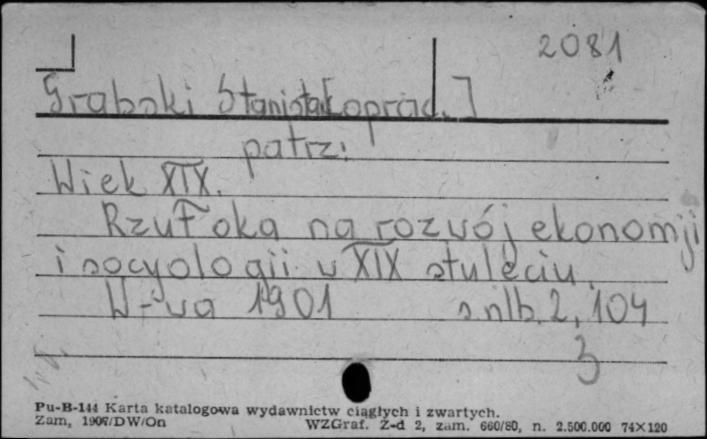 2081
Grabski Stanisław [oprad.]
patrz:
Wiek XIX.
Rzut oka na rozwój ekonomji
i socyologii w XIX stuleciu.
W-wa 1901 s. nlb. 2, 104
3
Pu-B-144 Karta katalogowa wydawnictw ciągłych i zwartych.
Zam, 1907/DW/On WZGraf. Z-d 2, zam. 660/80, n. 2.500.000 74×120